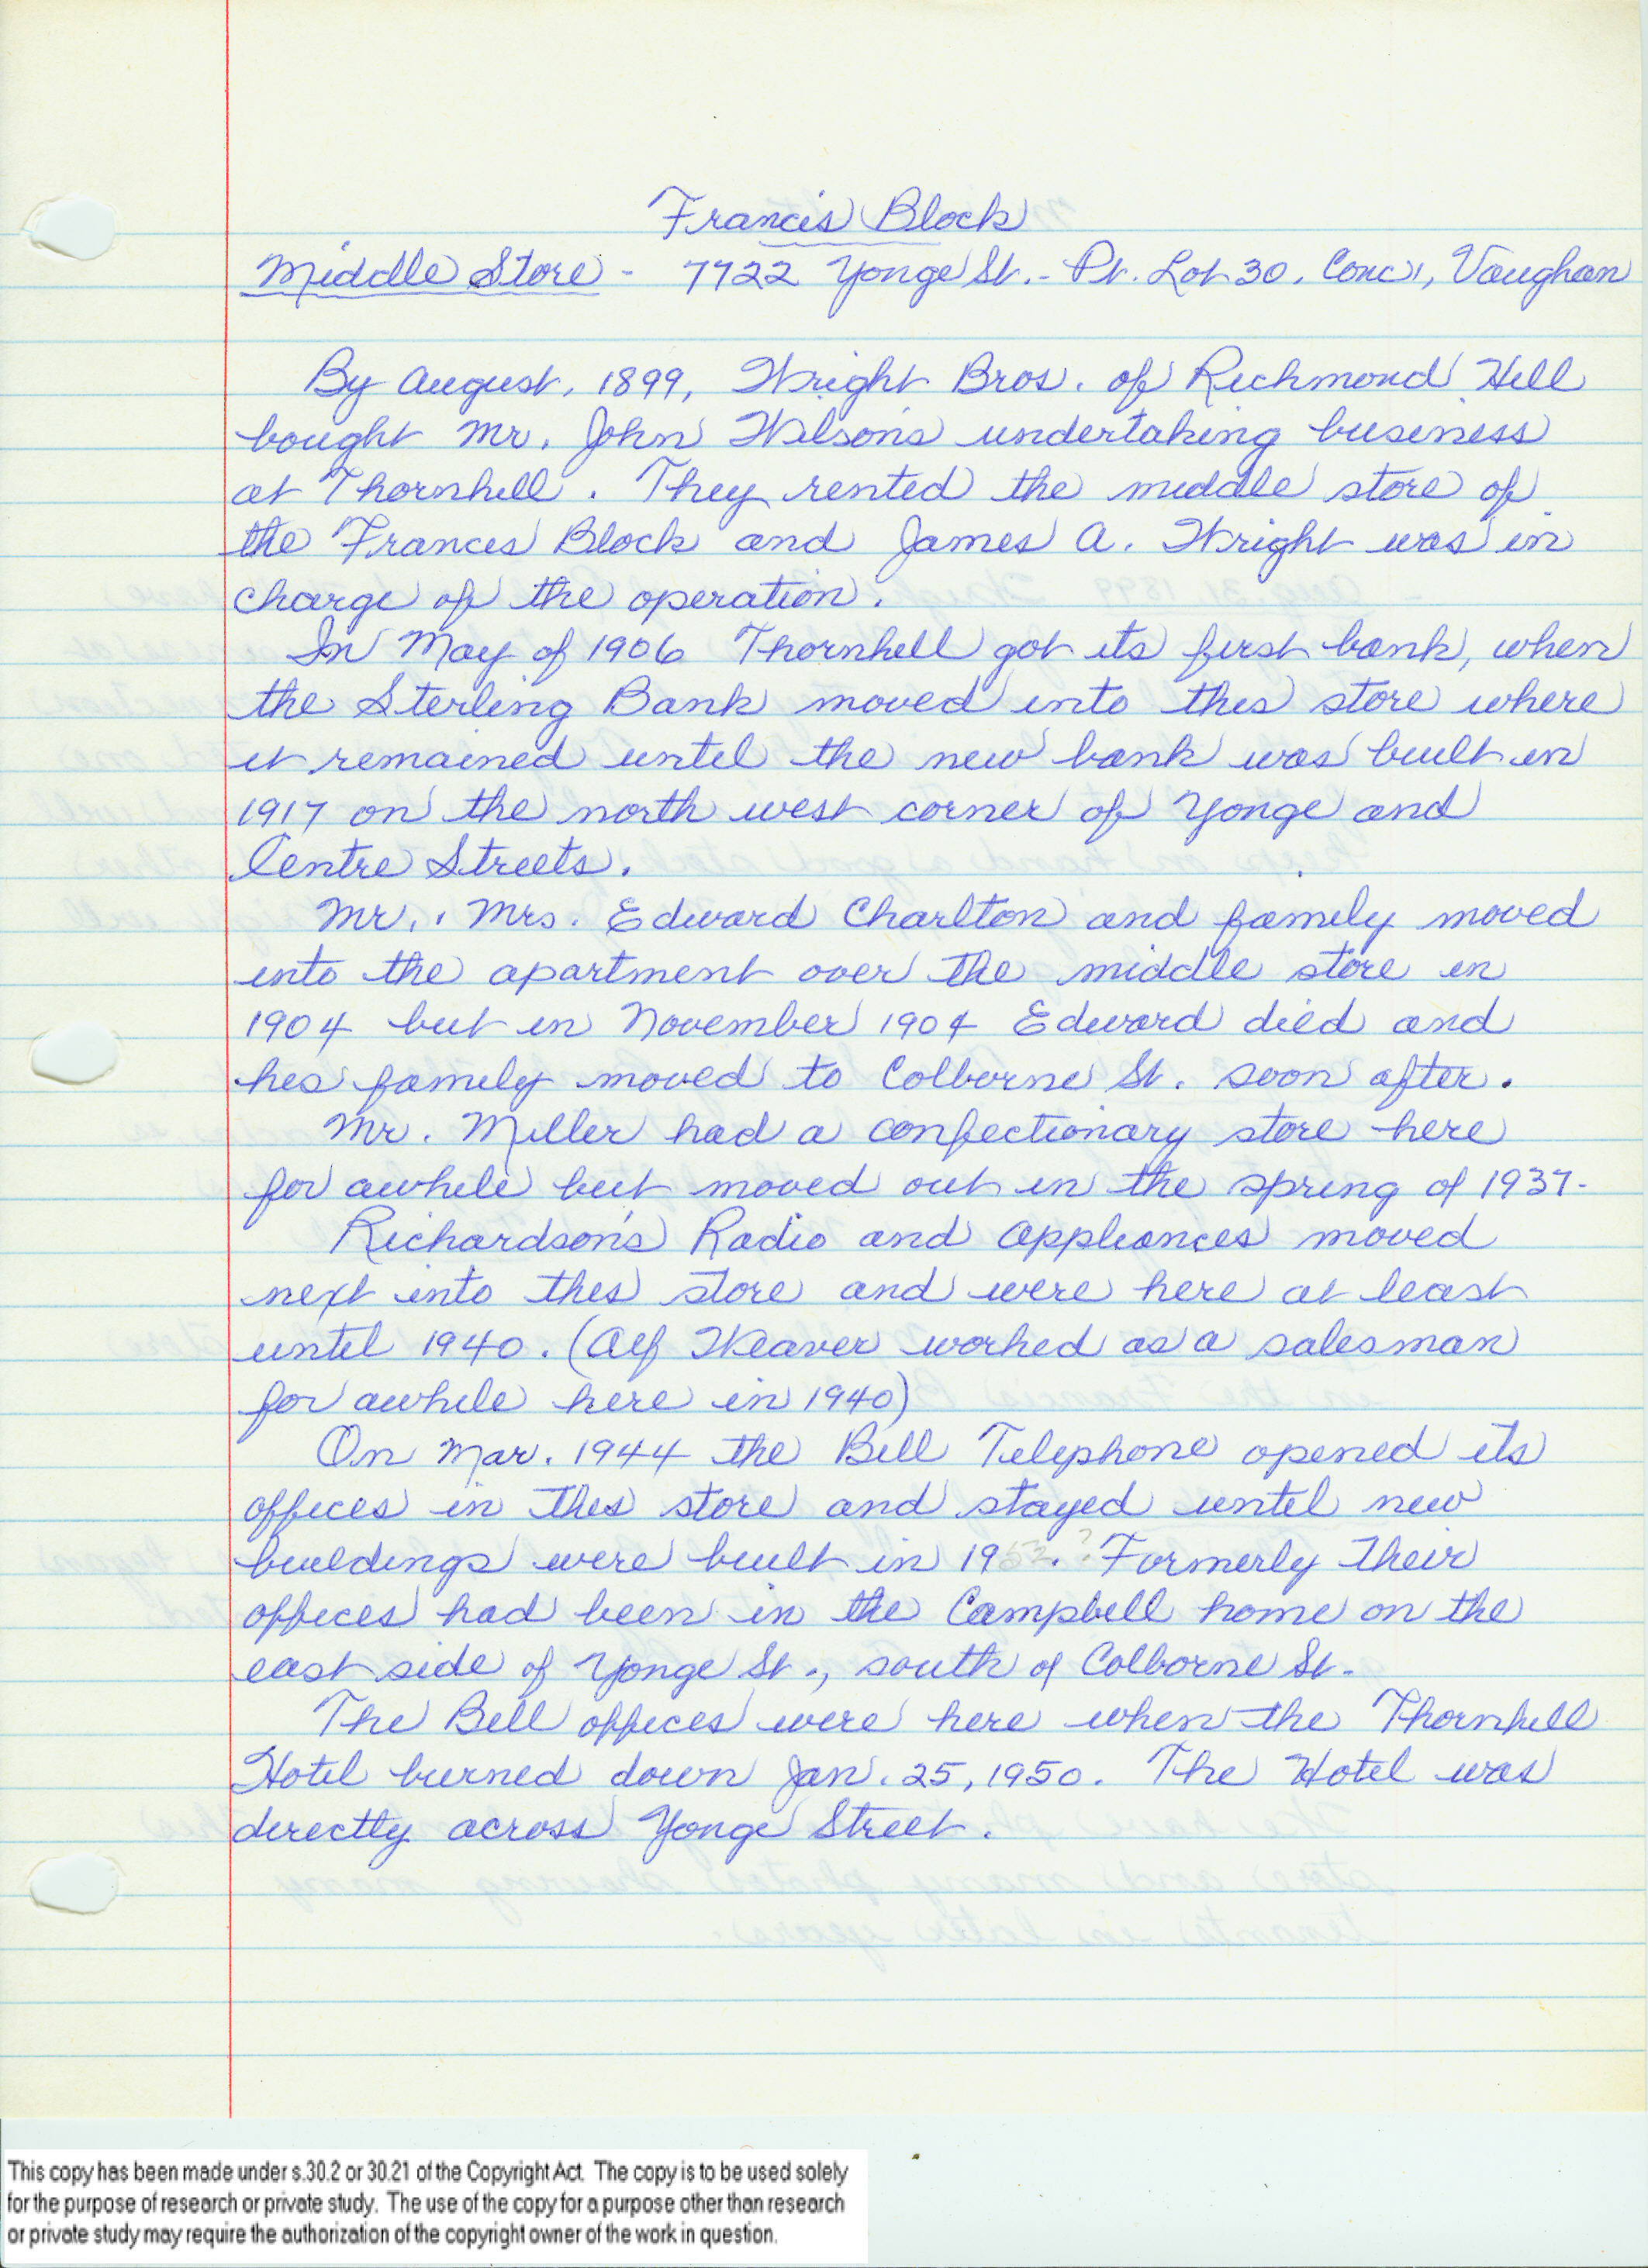 Francis Block
Middle Store - 7722 Yonge St. - Pt. Lot 30, Conc 1, Vaughan
By August, 1899, Wright Bros. of Richmond Hill
bought Mr. John Wilson's undertaking business
at Thornhill. They rented the middle store of
the Frances Block and James A. Wright was in
charge of the operation.
In May of 1906 Thornhill got its first bank, when
the Sterling Bank moved into this store where
it remained until the new bank was built in
1917 on the north west corner of Yonge and
Centre Streets.
Mr. , Mrs. Edward Charlton and family moved
into the apartment over the middle store in
1904 but in November 1904 Edward died and
his family moved to Colborne St. soon after.
Mr. Miller had a confectionary store here
for awhile but moved out in the spring of 1937.
Richardson's Radio and Appliances moved
next into this store and were here at least
until 1940. (Alf Weaver worked as a salesman
for awhile here in 1940)
On Mar. 1944 the Bell Telephone opened its
offices in this store and stayed until new
buildings were built in 1952?. Formerly their
offices had been in the Campbell home on the
east side of Yonge St., south of Colborne St.
The Bell offices were here when the Thornhill
Hotel burned down Jan. 25, 1950. The Hotel was
directly across Yonge Street.
This copy has been made under s.30.2 or 30.21 of the Copyright Act. The copy is to be used solely
for the purpose of research or private study. The use of the copy for a purpose other than research
or private study may require the authorization of the copyright owner of the work in question.